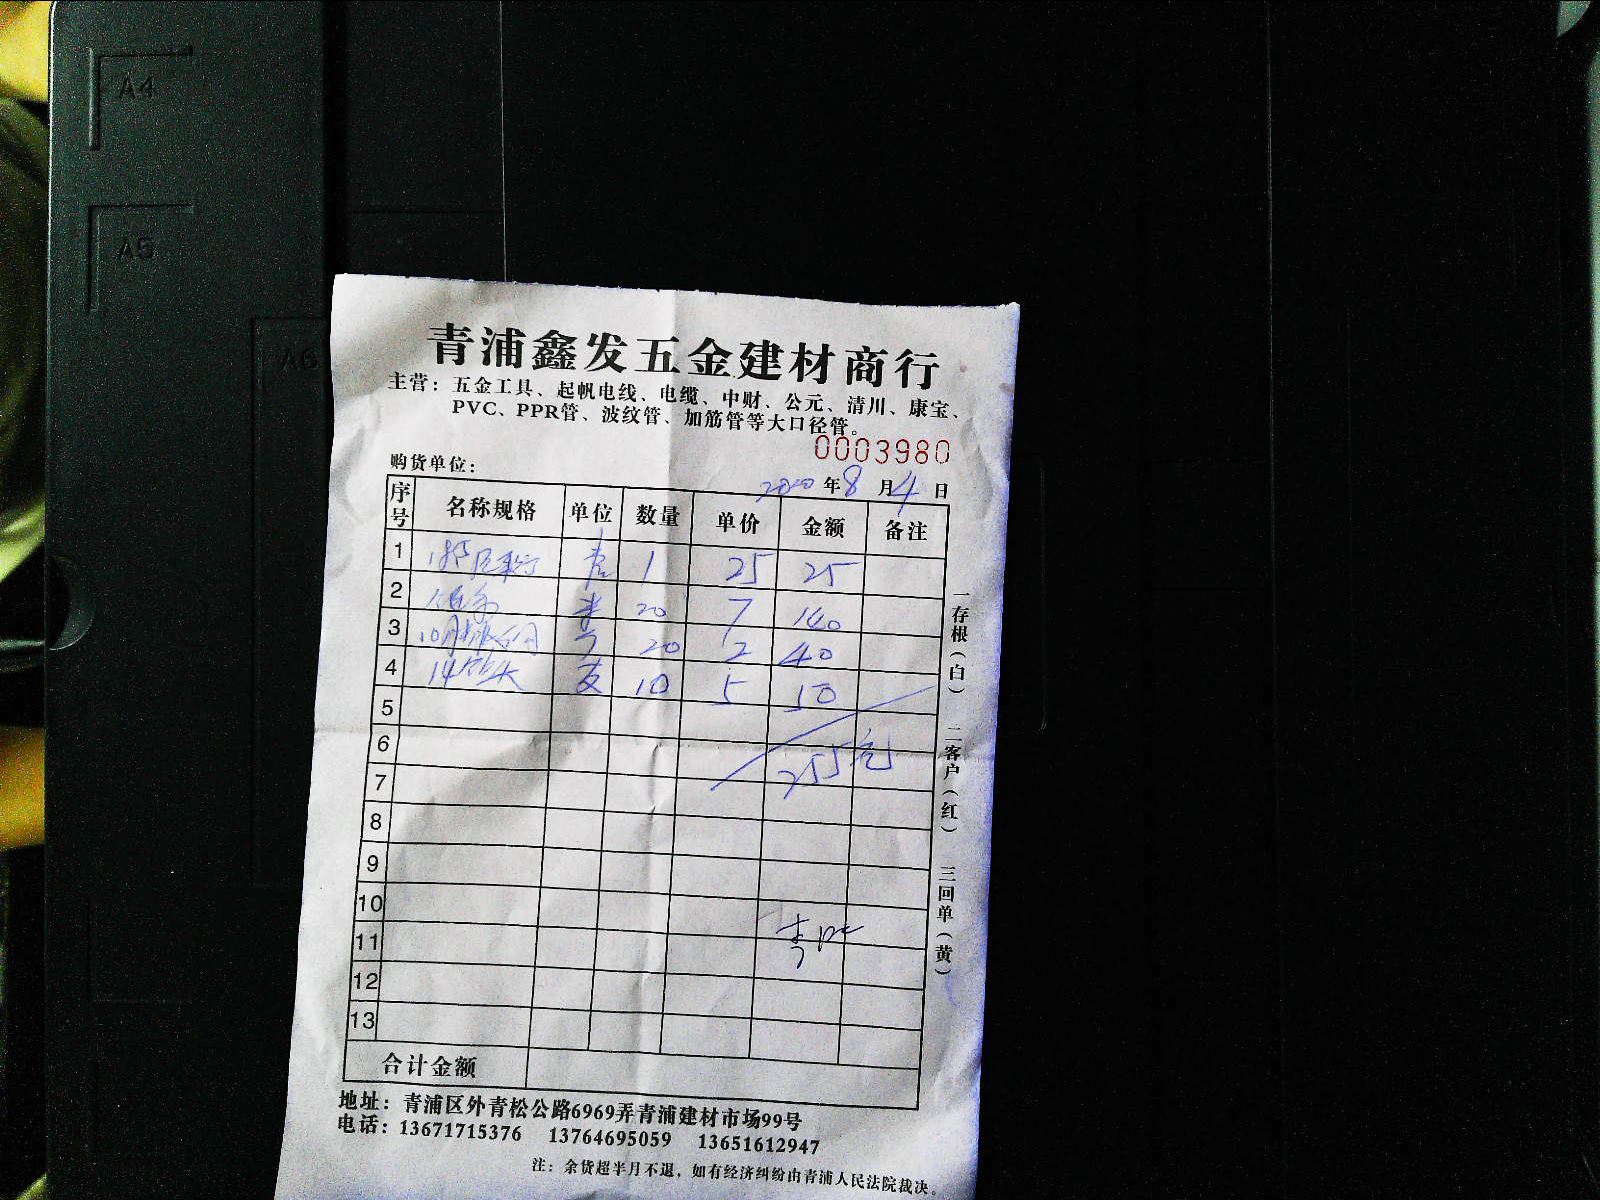 A4
A5
A6
青浦鑫发五金建材商行
主营：五金工具、起帆电线、电缆、中财、公元、清川、康宝、
PVC、PPR管、波纹管、加筋管等大口径管。
0003980
购货单位：
2020年8月4日
序号 名称规格 单位 数量 单价 金额 备注
1 1 25 25
2 20 7 140
3 20 2 40
4 14钻头 支 10 5 50
5
6 255元
7
8
9
10
11 李
12
13
合计金额
一存根（白） 二客户（红） 三回单（黄）
地址：青浦区外青松公路6969弄青浦建材市场99号
电话：13671715376 13764695059 13651612947
注：余货超半月不退，如有经济纠纷由青浦人民法院裁决。